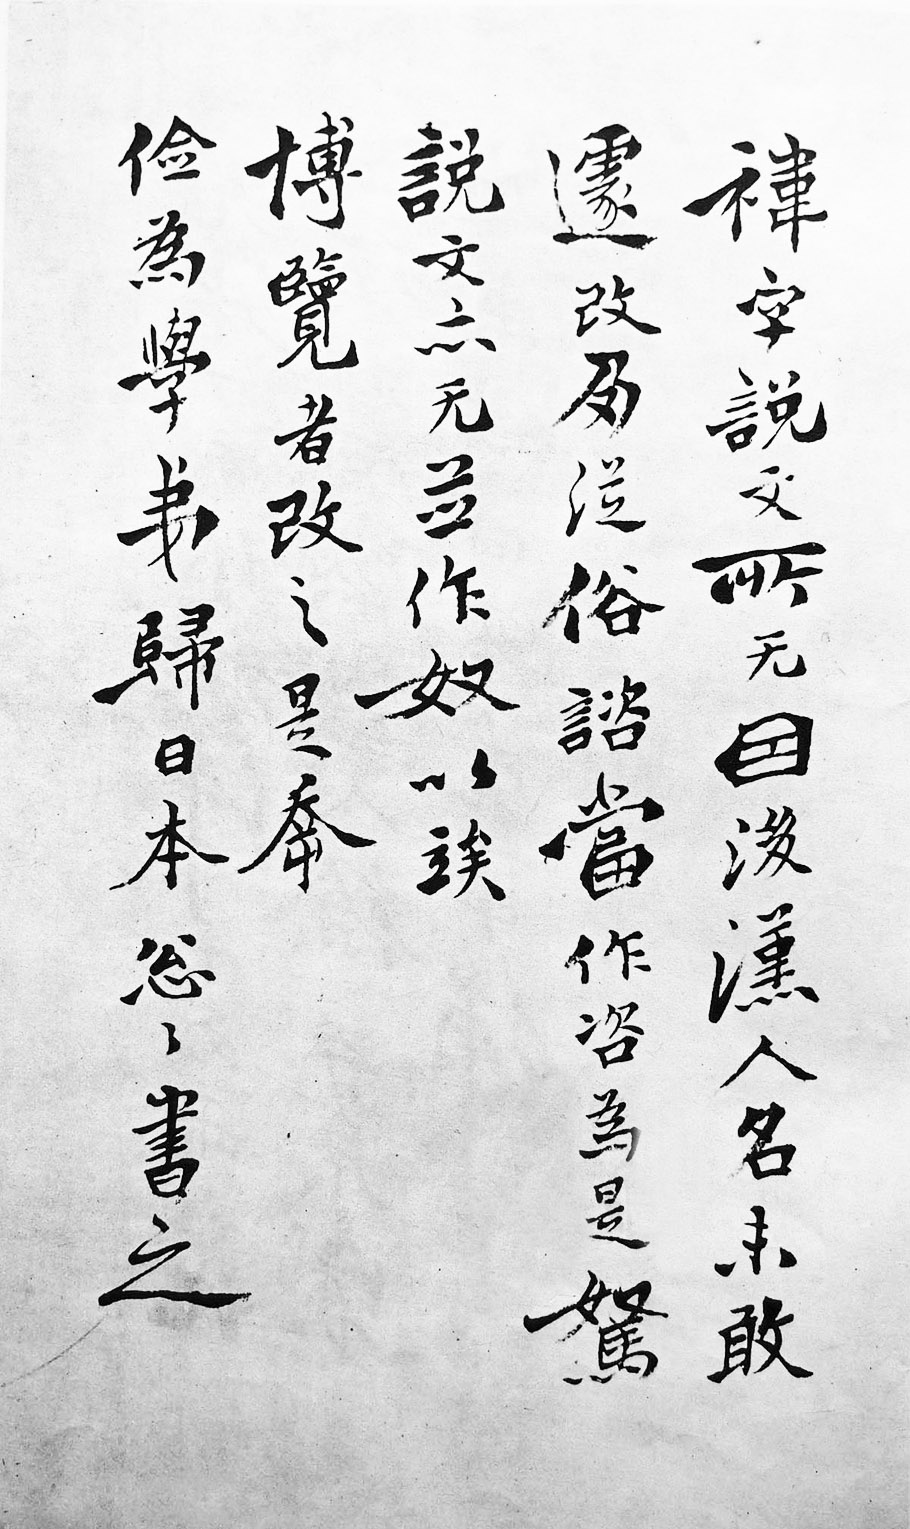 禕字說文所无因後漢人名未敢
遽改易從俗諮當作咨為是駑
說文亦无並作奴以竢
博覽者改之是幸
儉為學弟歸日本忩々書之